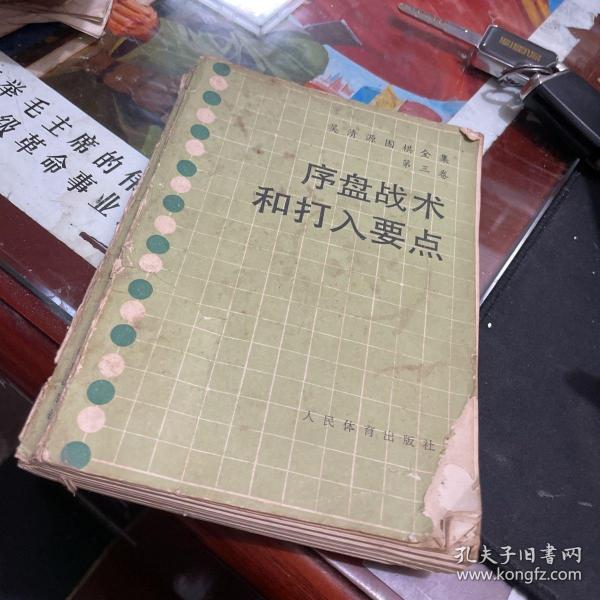 吴清源围棋全集
第三卷
序盘战术
和打入要点
人民体育出版社
举毛主席的伟
级革命事业
孔夫子旧書网
www.kongfz.com